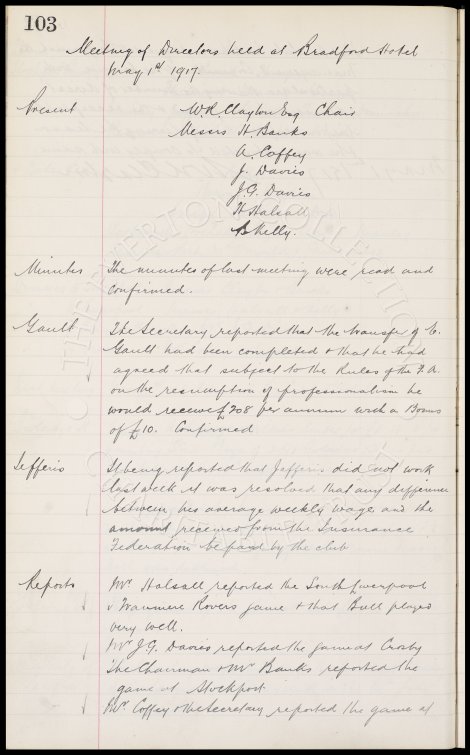 103
Meeting of Directors held at Bradford Hotel
May 1st 1917.
Present W.R. Clayton Esq Chair
Messrs H. Banks
A. Coffey
J. Davies
J.G. Davies
H. Halsall
B Kelly.
Minutes The minutes of last meeting were read and
confirmed.
Gault The Secretary reported that the transfer of E.
Gault had been completed & that he had
agreed that subject to the Rules of the F.A.
on the resumption of professionalism he
would receive £208 per annum with a Bonus
of £10. Confirmed
Jefferis It being reported that Jefferis did not work
last week it was resolved that any difference
between his average weekly wage and the
amount received from the Insurance
Federation be paid by the club
Reports Mr Halsall reported the South Liverpool
v Tranmere Rovers game & that Bull played
very well.
Mr J.G. Davies reported the game at Crosby
The Chairman & Mr Banks reported the
game at Stockport.
Mr Coffey & the Secretary reported the game at
THE EVERTON COLLECTION